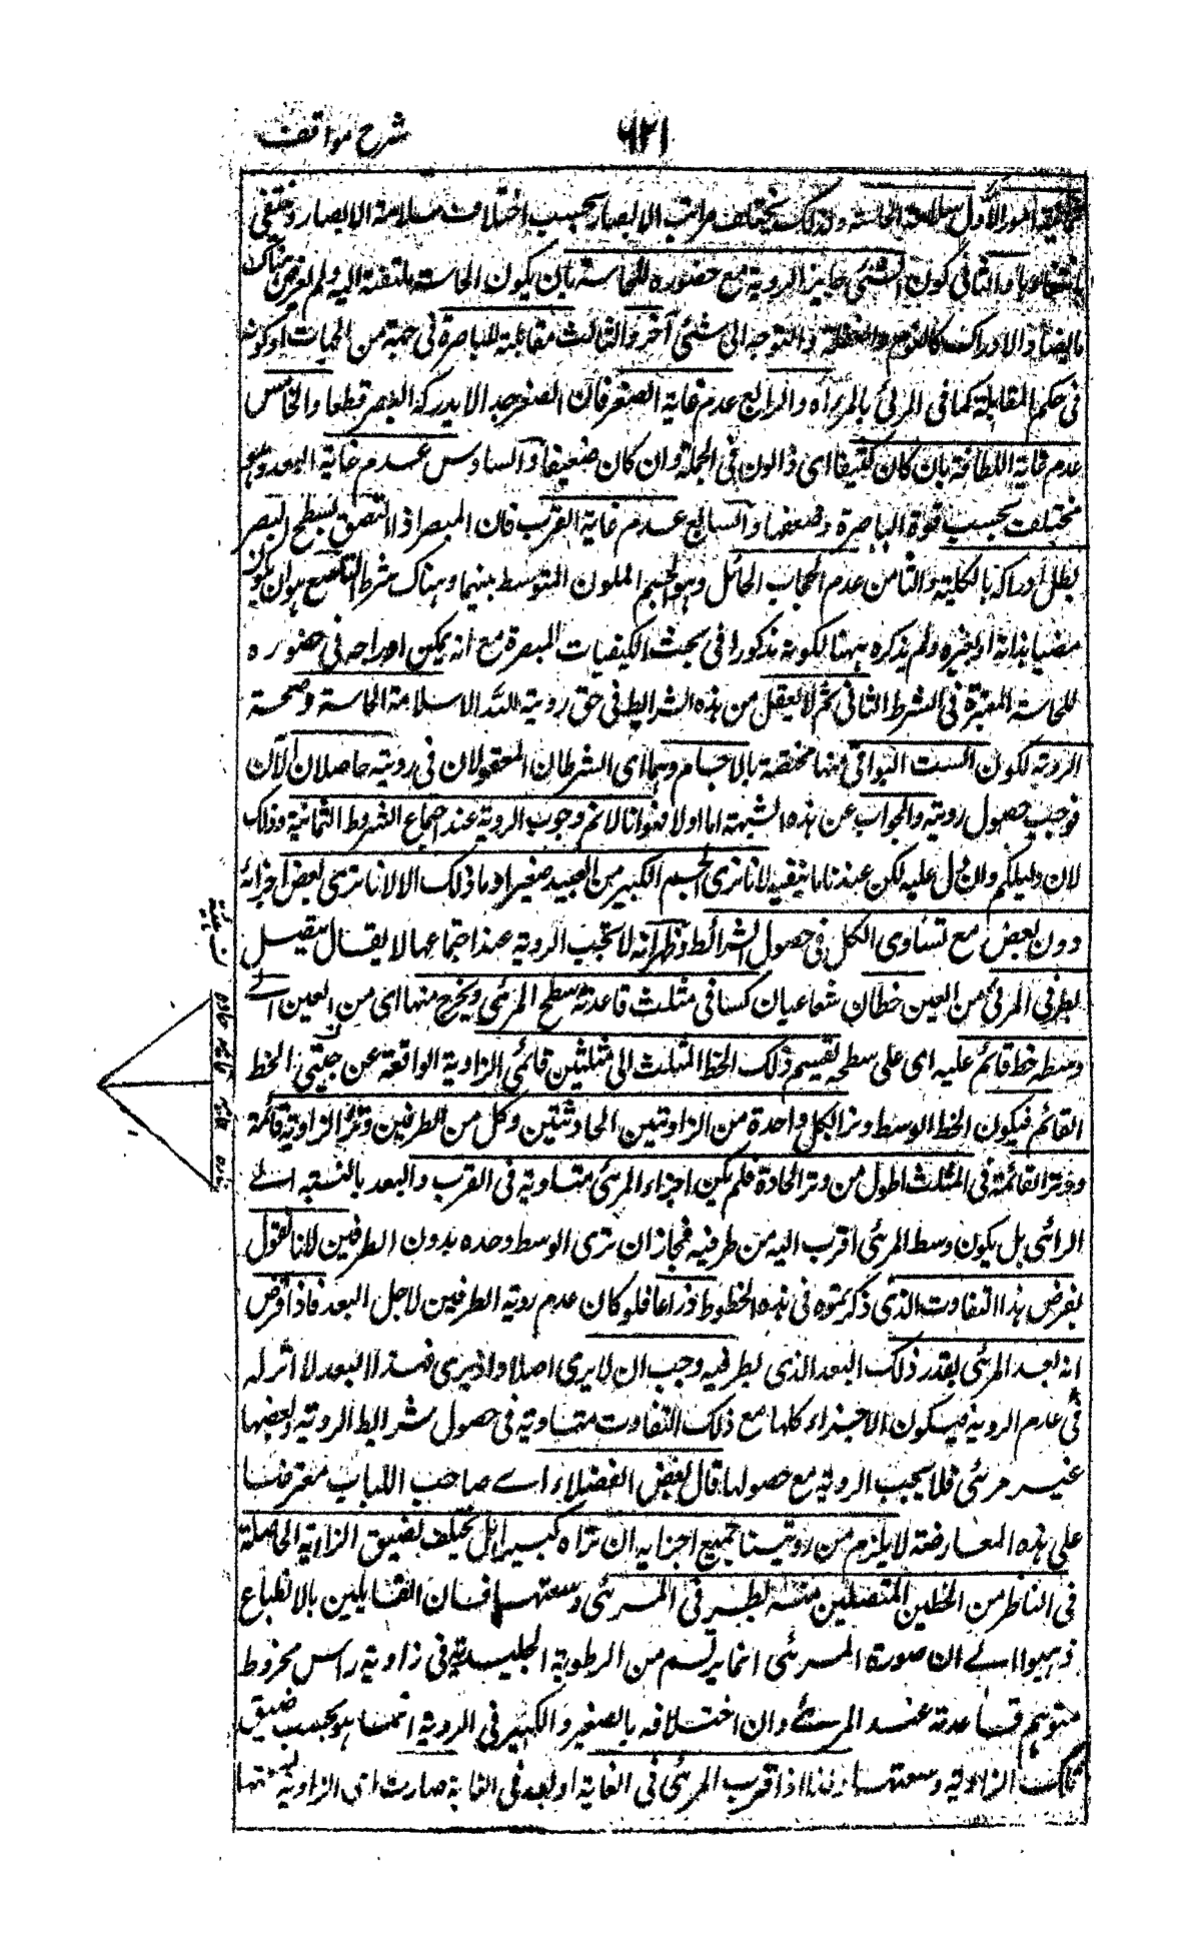 ٦٢١
شرح مواقف
ثمانية امور الأول سلامة الحاسة ولذلك يختلف مراتب الابصار بحسب اختلاف سلامة الابصار وينتفي
بانتفائها والثاني كون الشئ جايز الروية مع حضوره للحاسة بان يكون الحاسة ملتفتة اليه ولم يعرض هناك
ما يضاد الادراك كالنوم والغفلة والتوجه الى شئ آخر والثالث مقابلته للباصرة في جهة من الجهات او كونه
في حكم المقابلة كما في المرئ بالمرآة والرابع عدم غاية الصغر فان الصغير جدا لا يدركه البصر قطعا والخامس
عدم غاية اللطافة بان كان كثيفا اى ذا لون في الجملة وان كان ضعيفا والسادس عدم غاية البعد وهو
مختلف بحسب قوة الباصرة وضعفها والسابع عدم غاية القرب فان المبصر اذا التصق بسطح البصر
بطل ادراكه بالكلية والثامن عدم الحجاب الحائل وهو الجسم الملون المتوسط بينهما وهناك شرط التاسع هو ان يكون
مضيا بذاته او لغيره ولم يذكره ههنا لكونه مذكورا في بحث الكيفيات المبصرة مع انه يمكن ادراجه في حضوره
للحاسة المعتبرة في الشرط الثاني ثم لا يعقل من هذه الشرايط في حق روية الله الا سلامة الحاسة وصحة
الروية لكون الست البواقي منها مختصة بالاجسام وهما اى الشرطان المعقولان في رويته حاصلان الآن
فوجب حصول رويته والجواب عن هذه الشبهة اما اولا فهو انا لا نم وجوب الروية عند اجتماع الشروط الثمانية وذلك
لان دليلكم وان دل عليه لكن عندنا ما ينفيه لانا نرى الجسم الكبير من البعيد صغيرا وما ذلك الا لانا نرى بعض اجزائه
دون بعض مع تساوى الكل في حصول الشرائط فظهر انه لا تجب الروية عند اجتماعها لا يقال يتصل
بطرفى المرئ من العين خطان شعاعيان كساقى مثلث قاعدته سطح المرئى ويخرج منها اى من العين الى
وسطه خط قائم عليه اى على سطحه يقسم ذلك الخط المثلث الى مثلثين قائمى الزاوية الواقعة عن جنبتى الخط
القائم فيكون الخط الوسط وترا لكل واحدة من الزاويتين الحادثتين وكل من الطرفين وتر الزاوية قائمة
ووتر القائمة في المثلث اطول من وتر الحادة فلم يكن اجزاء المرئى متساوية في القرب والبعد بالنسبة الى
الرائى بل يكون وسط المرئى اقرب اليه من طرفيه فجاز ان نرى الوسط وحده بدون الطرفين لانا نقول
نفرض هذا التفاوت الذى ذكرتموه في هذه الخطوط ذراعا فلو كان عدم روية الطرفين لاجل البعد فاذا فرض
انه بعد المرئى بقدر ذلك البعد الذى لطرفيه وجب ان لا يرى اصلا واذ يرى فهذا البعد لا اثر له
في عدم الروية فيكون الاجزاء كلها مع ذلك التفاوت متساوية في حصول شرايط الروية وبعضها
غير مرئى فلا يجب الروية مع حصولها قال بعض الفضلاء اى صاحب اللباب معترضا
على هذه المعارضة لا يلزم من رويتنا جميع اجزايه ان نراه كبيرا بل يختلف بضيق الزاوية الحاصلة
في الناظر من الخطين المتصلين منه بطرفى المرئى وسعتها فان القايلين بالانطباع
ذهبوا الى ان صورة المرئى انما يرتسم من الرطوبة الجليدية في زاوية راس مخروط
متوهم قاعدته عند المرئى وان اختلافه بالصغير والكبير في الروية انما هو بحسب ضيق
تلك الزاوية وسعتها ولذا اذا قرب المرئى في الغاية او بعد في الغاية صارت اى الزاوية
حادة
قائمة
قائمة
حادة